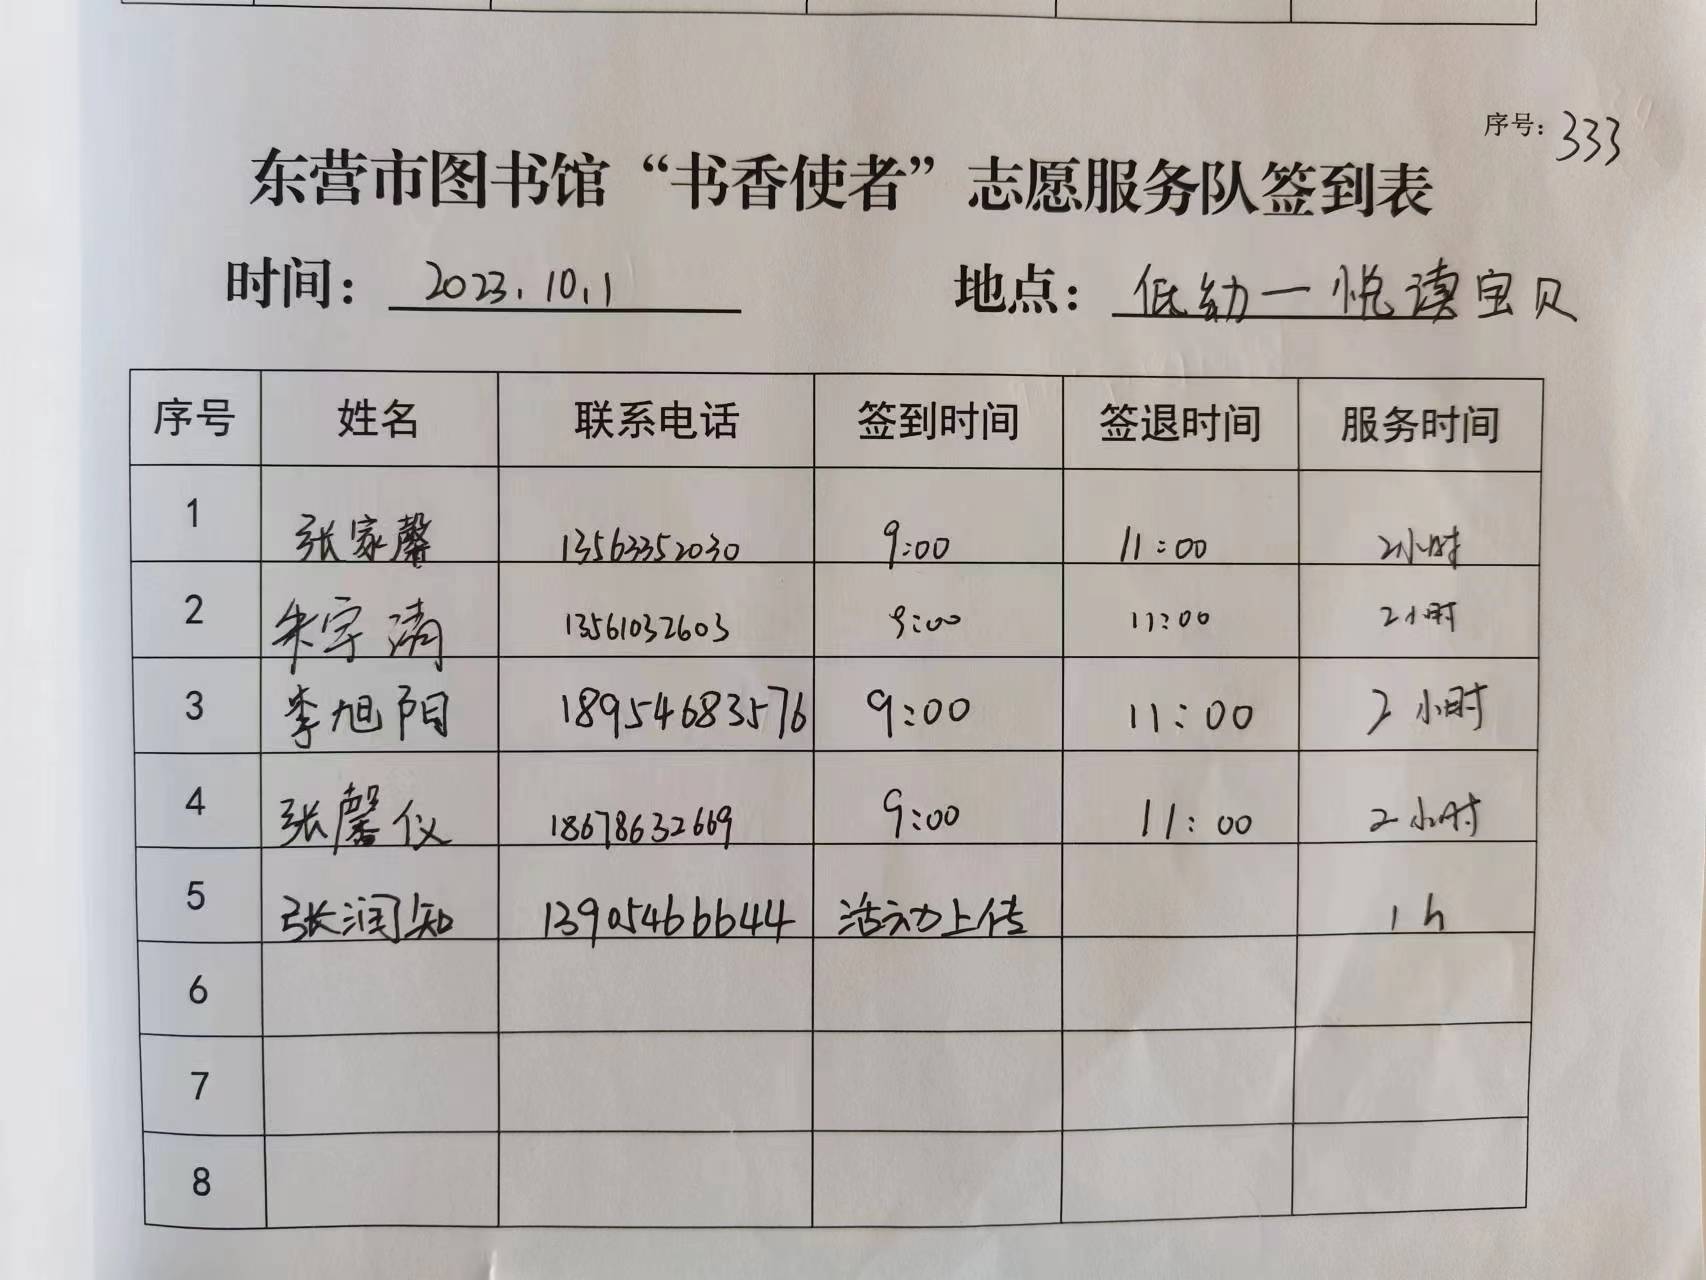 序号：333
东营市图书馆“书香使者”志愿服务队签到表
时间：2023.10.1 地点：低幼一悦读宝贝
序号 姓名 联系电话 签到时间 签退时间 服务时间
1 张家馨 13563352030 9:00 11:00 2小时
2 朱宇清 13561032603 9:00 11:00 2小时
3 李旭阳 18954683576 9:00 11:00 2小时
4 张馨仪 18678632669 9:00 11:00 2小时
5 张润知 13905466644 活动上传 1h
6
7
8